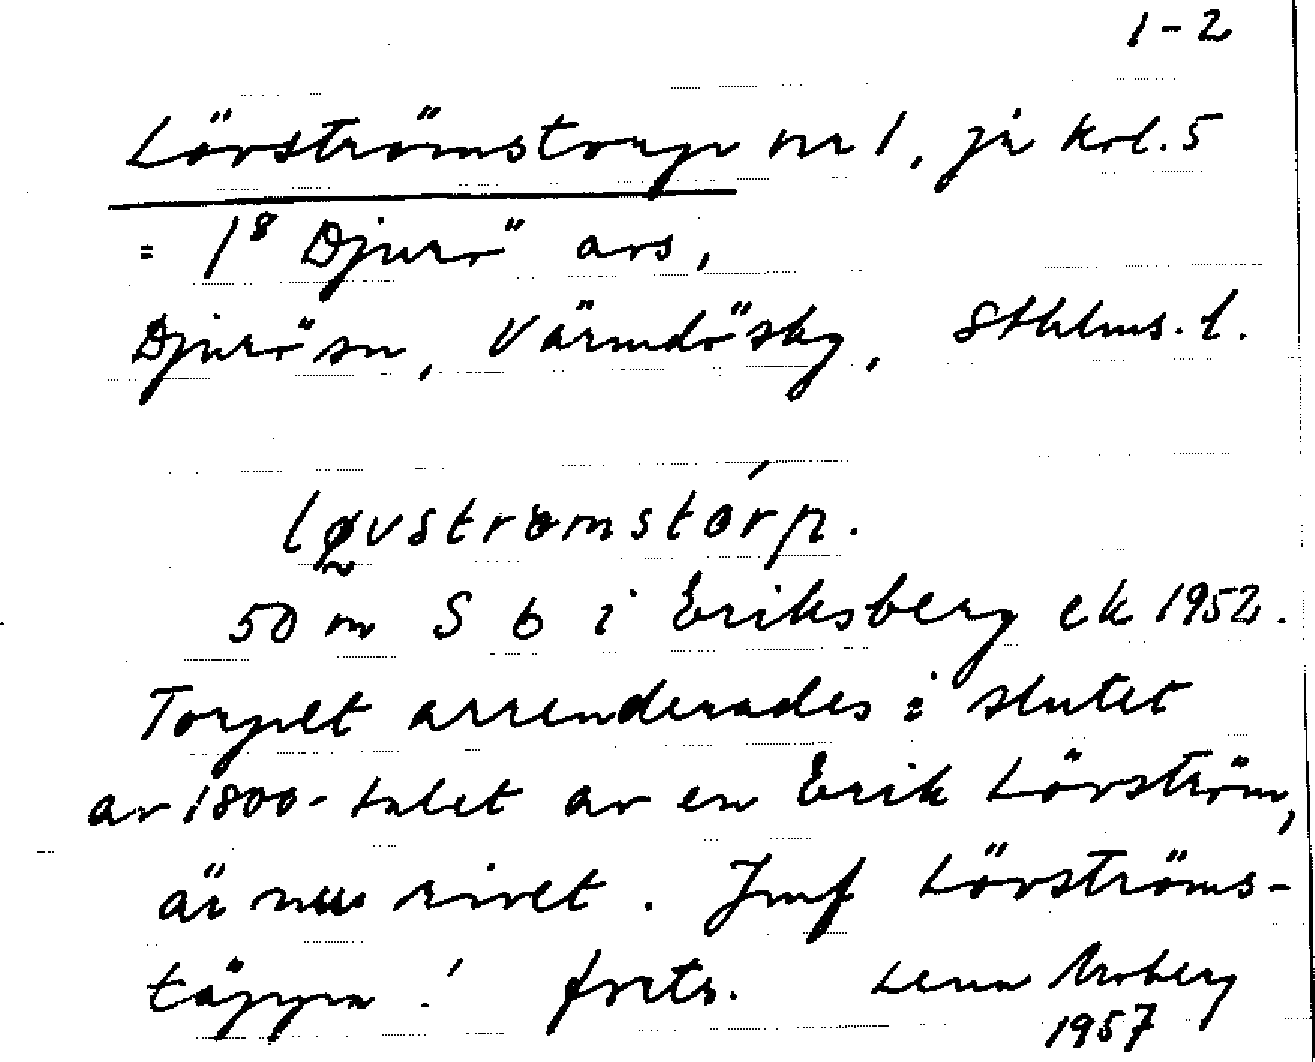 1-2
Lövströmstorp nr 1, på krl. 5
= 1⁸ Djurö avs,
Djurö sn, Värmdö skg, Sthlms. l.
løvstrømstórp.
50 m S b i Eriksberg ek 1952.
Torpet arrenderades i slutet
av 1800-talet av en Erik Lövström,
är nu rivet. Jmf Lövströms-
täppan! forts. Lena Moberg
1957